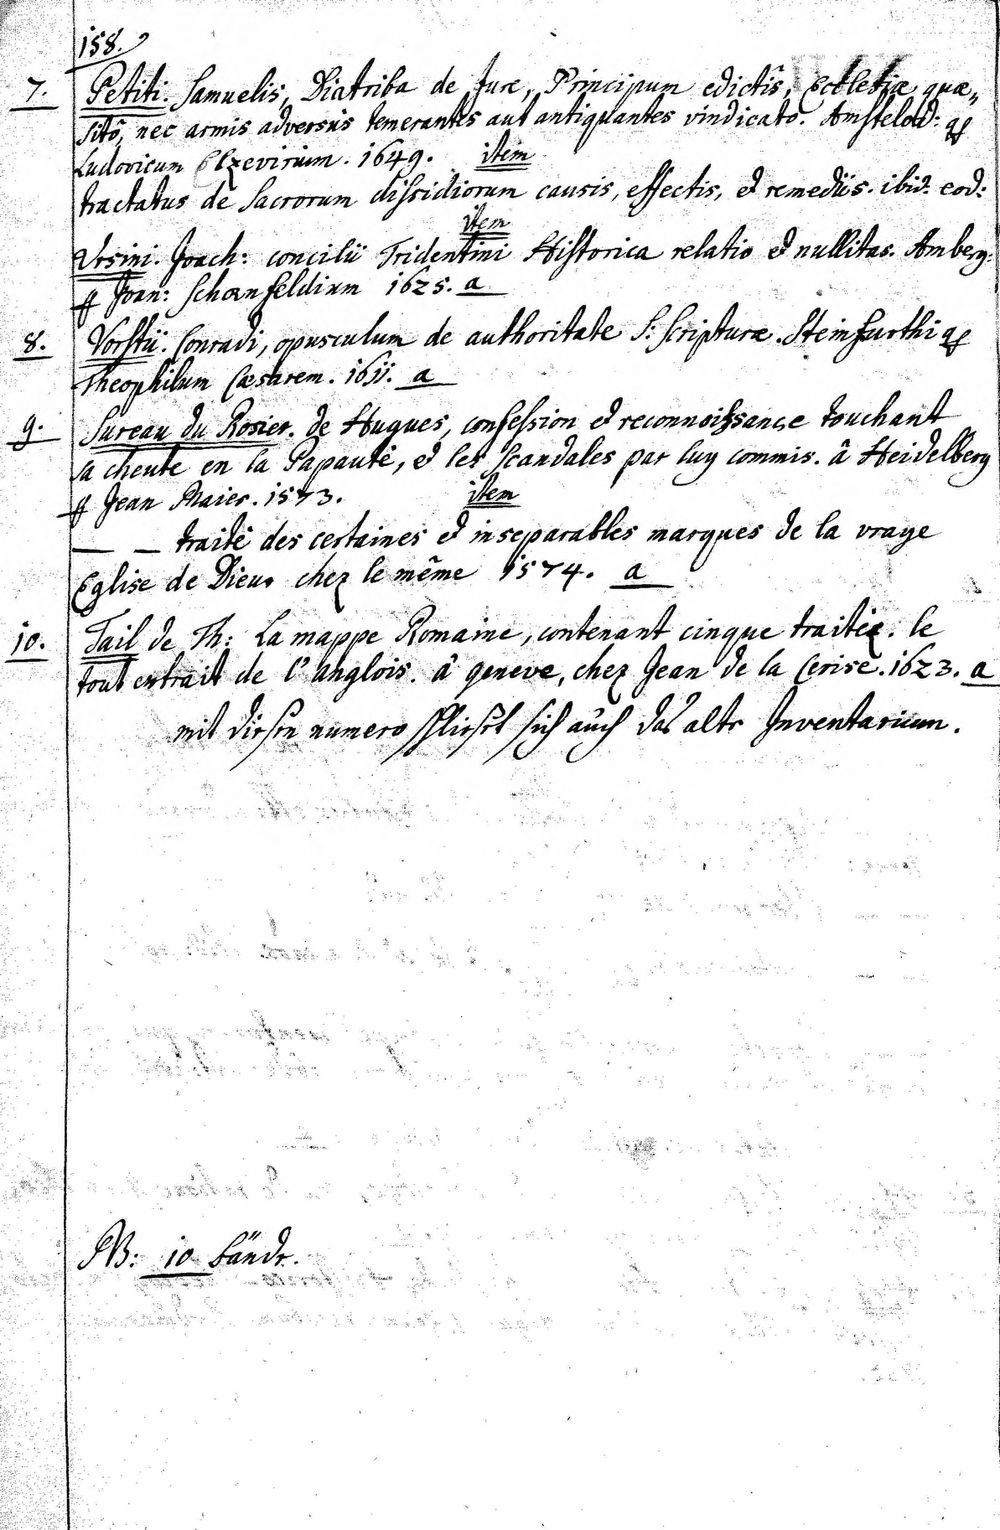 158.
7. Petiti. Samuelis, Diatriba de Jure, Principum edictis, Ecclesiæ quæ-
sitô, nec armis adversùs temerantes aut antiquantes vindicato. Amstelod:
Ludovicum Elzevirium. 1649. item
tractatus de Sacrorum dissidiorum causis, effectis, et remediis. ibid. eod:
item
Ursini. Joach: concilii Tridentini Historica relatio et nullitas. Amberg:
Joan: Schœnfeldium 1625. a
8. Vorstii. Conradi, opusculum de authoritate S: Scripturæ. Steinfurthi
Theophilum Cæsarem. 1611. a
9. Sureau du Rosier. de Hugues, confession et reconnoissance touchant
sa cheute en la Papauté, et les Scandales par luy commis. â Heidelberg
Jean Maier. 1573. item
— — traité des certaines et inseparables marques de la vraye
Eglise de Dieu. chez le même 1574. a
10. Tail de Th: La mappe Romaine, contenant cinque traitéz. le
tout extrait de l'anglois. â geneve, chez Jean de la Cerise. 1623. a
mit diesen numero schliesst sich auch das alte Inventarium.
NB: 10 Bände.